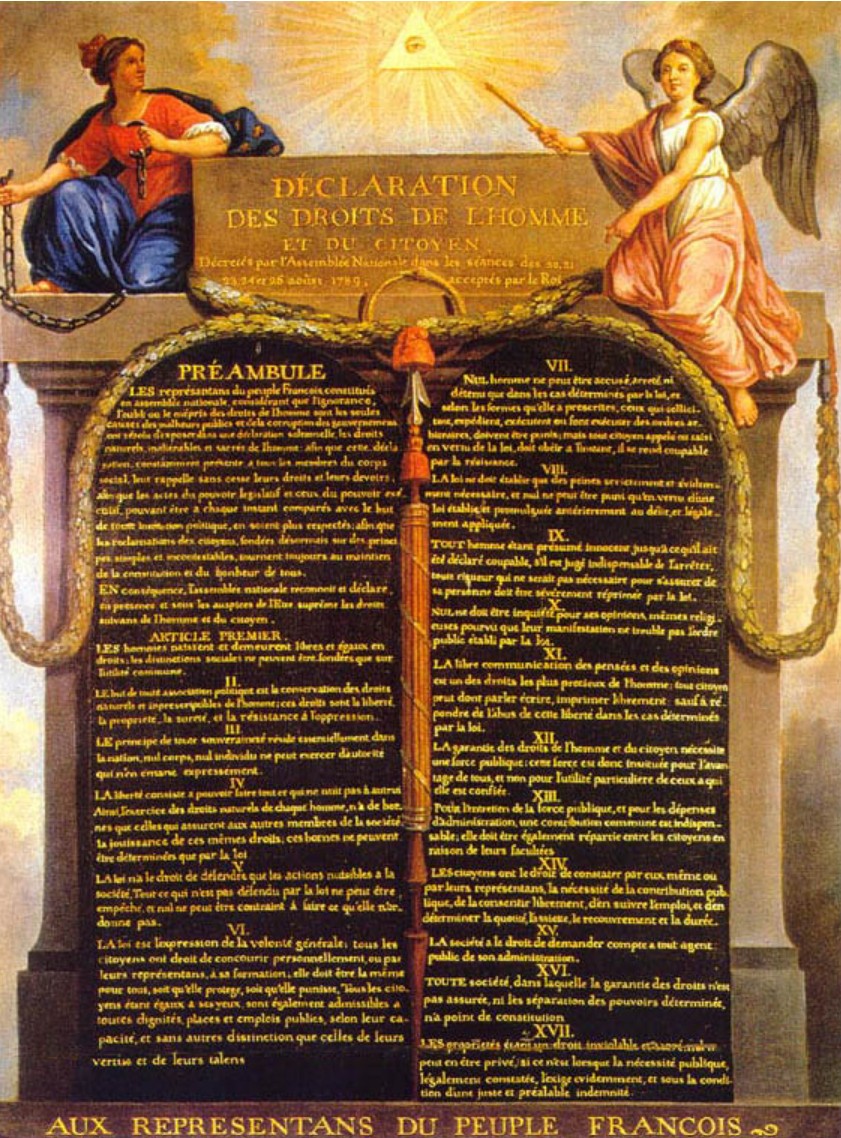 DÉCLARATION
DES DROITS DE L'HOMME
ET DU CITOYEN,
Décretés par l'Assemblée Nationale dans les séances des 20, 21
23, 24 et 26 août 1789, acceptés par le Roi
PRÉAMBULE
LES représentans du peuple François, constitués
en assemblée nationale, considérant que l'ignorance,
l'oubli ou le mépris des droits de l'homme sont les seules
causes des malheurs publics et de la corruption des gouvernemens
ont résolu d'exposer dans une déclaration solemnelle, les droits
naturels, inaliénables et sacrés de l'homme; afin que cette décla
ration, constamment présente a tous les membres du corps
social, leur rappelle sans cesse leurs droits et leurs devoirs,
afin que les actes du pouvoir legislatif et ceux du pouvoir exé
cutif, pouvant être a chaque instant comparés avec le but
de toute institution politique, en soient plus respectés; afin que
les reclamations des citoyens, fondées désormais sur des princi
pes simples et incontestables, tournent toujours au maintien
de la constitution et du bonheur de tous.
EN conséquence, l'assemblée nationale reconnoit et déclare,
en presence et sous les auspices de l'Etre suprême les droits
suivans de l'homme et du citoyen.
ARTICLE PREMIER.
LES hommes naissent et demeurent libres et égaux en
droits; les distinctions sociales ne peuvent être fondées que sur
l'utilité commune.
II.
LE but de toute association politique est la conservation des droits
naturels et imprescriptibles de l'homme; ces droits sont la liberté,
la propriété, la sureté, et la résistance à l'oppression.
III
LE principe de toute souveraineté réside essentiellement dans
la nation, nul corps, nul individu ne peut exercer d'autorité
qui n'en émane expressement.
IV
LA liberté consiste a pouvoir faire tout ce qui ne nuit pas à autrui
Ainsi, l'exercice des droits naturels de chaque homme, n'a de bor
nes que celles qui assurent aux autres membres de la société
la jouissance de ces mêmes droits; ces bornes ne peuvent
être déterminées que par la loi
V
LA loi n'a le droit de défendre que les actions nuisibles a la
société. Tout ce qui n'est pas défendu par la loi ne peut être
empêché, et nul ne peut être contraint à faire ce qu'elle n'or-
donne pas.
VI.
LA loi est l'expression de la volonté générale; tous les
citoyens ont droit de concourir personnellement, ou par
leurs représentans, à sa formation; elle doit être la même
pour tous, soit qu'elle protege, soit qu'elle punisse, Tous les cito
yens étant égaux à ses yeux, sont également admissibles a
toutes dignités, places et emplois publics, selon leur ca-
pacité, et sans autres distinction que celles de leurs
vertus et de leurs talens
VII.
NUL homme ne peut être accusé, arreté, ni
détenu que dans les cas déterminés par la loi, et
selon les formes qu'elle a prescrites, ceux qui sollici-
tent, expédient, exécutent ou font exécuter des ordres ar-
bitraires, doivent être punis; mais tout citoyen appelé ou saisi
en vertu de la loi, doit obéir a l'instant, il se rend coupable
par la résistance.
VIII.
LA loi ne doit établir que des peines strictement et évidem-
ment nécessaire, et nul ne peut être puni qu'en vertu d'une
loi établie et promulguée antérierement au délit, et légale
ment appliquée.
IX.
TOUT homme étant présumé innocent jusqu'à ce qu'il ait
été déclaré coupable, s'il est jugé indispensable de l'arrêter,
toute rigueur qui ne serait pas nécessaire pour s'assurer de
sa personne doit être sévèrement réprimée par la loi.
X.
NUL ne doit être inquiété pour ses opinions, mêmes religi
euses pourvu que leur manifestation ne trouble pas l'ordre
public établi par la loi.
XI.
LA libre communication des pensées et des opinions
est un des droits les plus precieux de l'homme; tout citoyen
peut dont parler écrire, imprimer librement; sauf à ré
pondre de l'abus de cette liberté dans les cas déterminés
par la loi.
XII.
LA garantie des droits de l'homme et du citoyen nécessite
une force publique; cette force est donc instituée pour l'avan
tage de tous, et non pour l'utilité particuliere de ceux a qui
elle est confiée.
XIII.
Pour l'entretien de la force publique, et pour les dépenses
d'administration, une contribution commune est indispen-
sable; elle doit être également répartie entre les citoyens en
raison de leurs facultées
XIV.
LES citoyens ont le droit de constater par eux même ou
par leurs représentans, la nécessité de la contribution pub-
lique, de la consentir librement, d'en suivre l'emploi, et d'en
déterminer la quotité, l'assiete, le recouvrement et la durée.
XV.
LA société a le droit de demander compte a tout agent
public de son administration.
XVI.
TOUTE société, dans laquelle la garantie des droits n'est
pas assurée, ni les séparation des pouvoirs déterminée,
n'a point de constitution
XVII.
LES propriétés étant un droit inviolable et sacré, nul ne
peut en être privé, si ce n'est lorsque la nécessité publique,
légalement constatée, l'exige evidemment, et sous la condi-
tion d'une juste et préalable indemnité.
AUX REPRESENTANS DU PEUPLE FRANCOIS